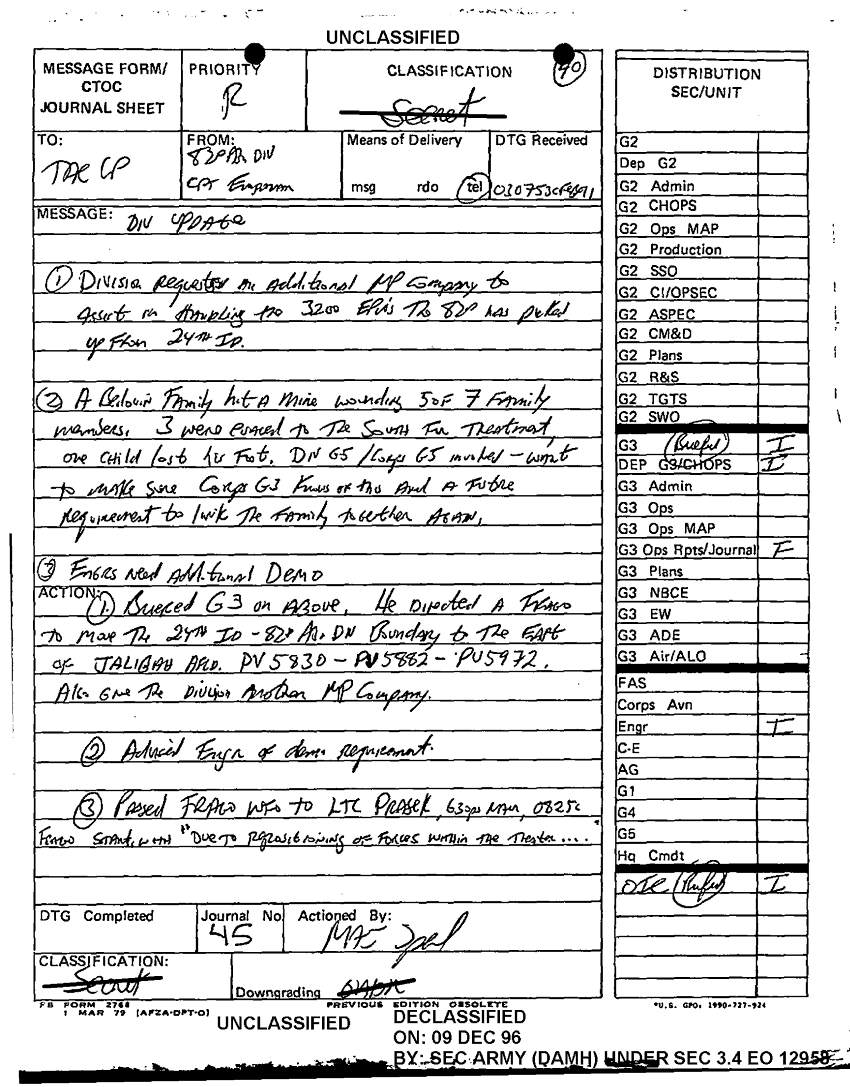 UNCLASSIFIED
MESSAGE FORM/
CTOC
JOURNAL SHEET
PRIORITY
R
CLASSIFICATION
Secret
40
TO:
TAC CP
FROM:
82D Ab DIV
CPT
Means of Delivery
msg rdo tel
DTG Received
MESSAGE: DIV UPDATE
① Division requests an additional MP Company to
assist in Handling the 3200 EPWs The 82D has picked
up From 24TH ID.
② A Bedouin Family hit A Mine wounding 5 of 7 Family
members. 3 were evaced to The South For Treatment,
one child lost his Foot. DIV G5 / Corps G5 involved – want
to make sure Corps G3 Knows of this And A Future
requirement to link The Family together Again.
③ Engrs Need Additional Demo
ACTION:
① Briefed G3 on Above. He Directed A Frago
to move The 24TH ID - 82D Ab. Div Boundary to The EAST
of JALIBAH AFLD. PV 5830 – PV 5882 – PV 5972.
Also Give The Division Another MP Company.
② Advised Engr of demo requirement.
③ Passed FRAGO INFO to LTC PRASEK, G3 Ops MAIN, 0825C
Frago Start with "DUE TO Repositioning of Forces within the Theater...."
DTG Completed
Journal No
45
Actioned By:
CLASSIFICATION:
Secret
Downgrading OADR
FB FORM 2768
1 MAR 79 (AFZA-DPT-O)
PREVIOUS EDITION OBSOLETE
UNCLASSIFIED
DECLASSIFIED
ON: 09 DEC 96
BY: SEC ARMY (DAMH) UNDER SEC 3.4 EO 12958
DISTRIBUTION
SEC/UNIT
G2
Dep G2
G2 Admin
G2 CHOPS
G2 Ops MAP
G2 Production
G2 SSO
G2 CI/OPSEC
G2 ASPEC
G2 CM&D
G2 Plans
G2 R&S
G2 TGTS
G2 SWO
G3 (Briefed) I
DEP G3/CHOPS I
G3 Admin
G3 Ops
G3 Ops MAP
G3 Ops Rpts/Journal F
G3 Plans
G3 NBCE
G3 EW
G3 ADE
G3 Air/ALO
FAS
Corps Avn
Engr I
C-E
AG
G1
G4
G5
Hq Cmdt
I
*U.S. GPO: 1990-727-924